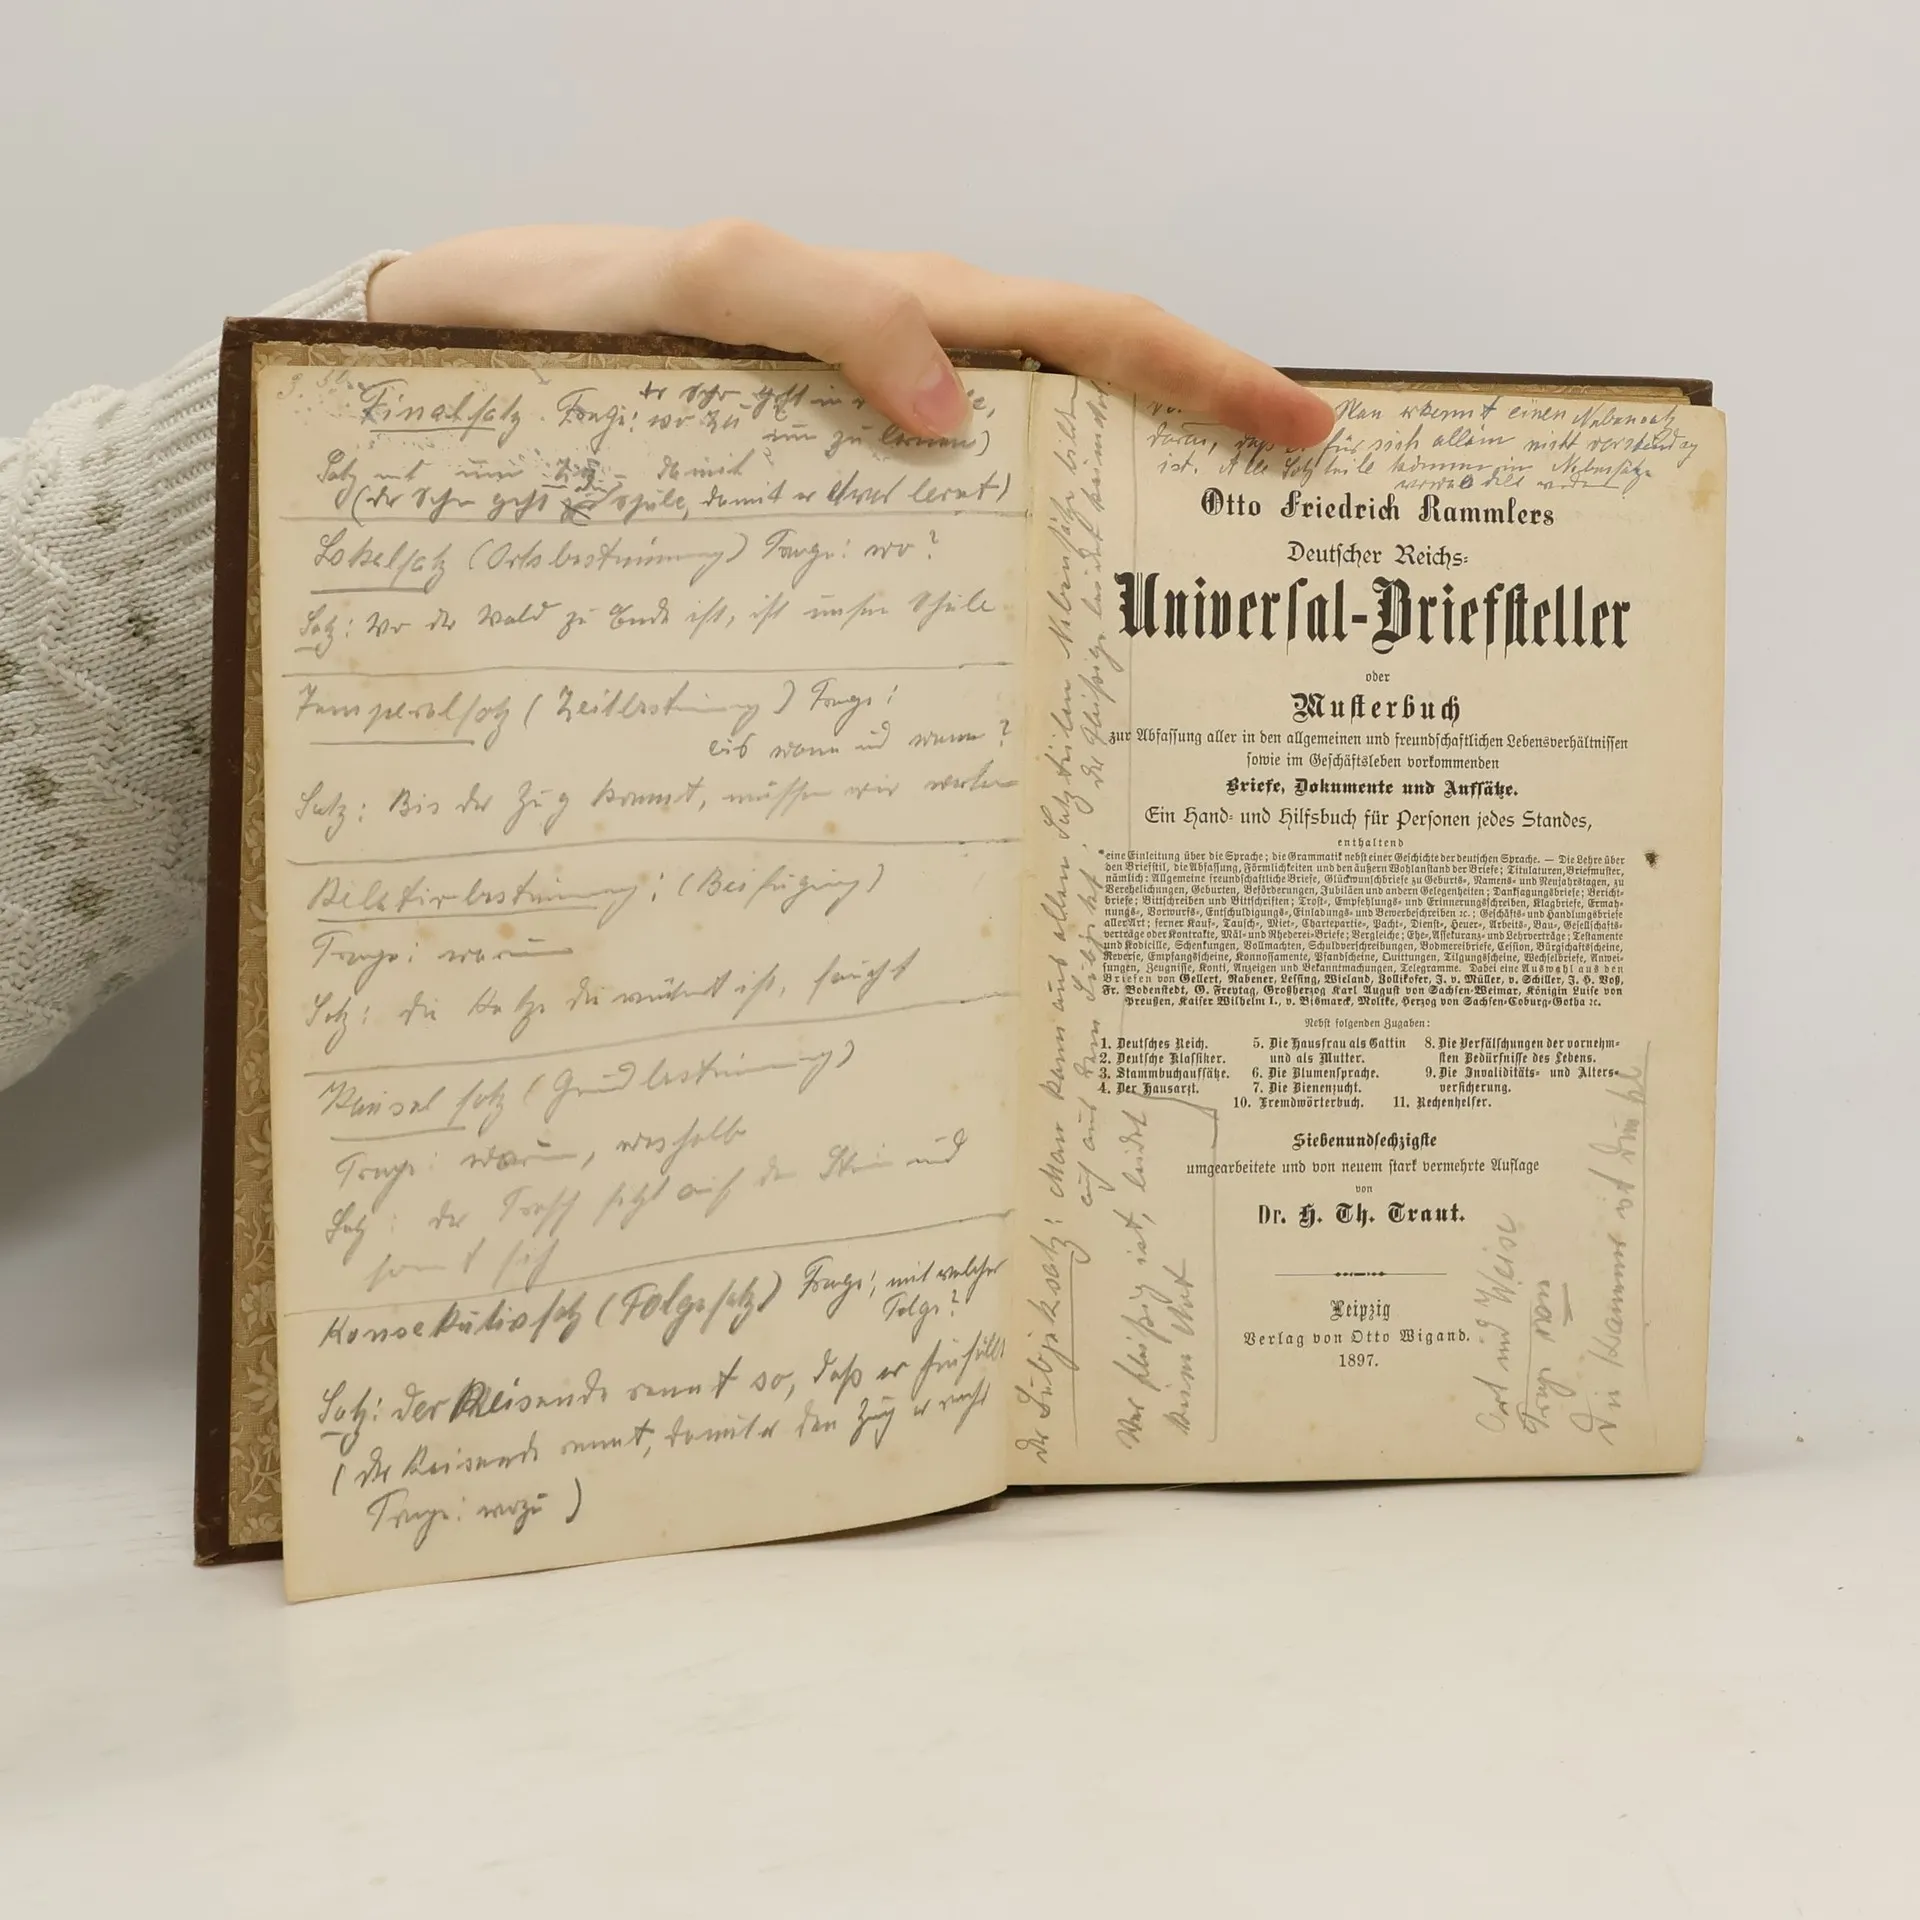 Finalsatz. Frage: wozu
um zu lernen)
Satz mit um zu – damit
(der Sohn geht Schule, damit er etwas lernt)
Lokalsatz (Ortsbestimmung) Frage: wo?
Satz: Wo der Wald zu Ende ist, ist unsere Schule
Temporalsatz (Zeitbestimmung) Frage:
bis wann und wann?
Satz: Bis der Zug kommt, müssen wir warten
Relativbestimmung: (Beifügung)
Frage: warum
Satz: die Katze die wütend ist, faucht
Kausalsatz (Grundbestimmung)
Frage: warum, weshalb
Satz: der Frosch sitzt auf dem Stein und
sonnt sich
Konsekutivsatz (Folgesatz) Frage: mit welcher
Folge?
Satz: Der Reisende rennt so, daß er hinfällt
(der Reisende rennt, damit er den Zug erreicht
Frage: wozu)
Der Subjektsatz: Man kann aus allen Satzteilen Nebensätze bilden
auch aus dem Subjekt. der Fleißige leidet keine Not
Wer fleißig ist, leidet
keine Not
Man erkennt einen Nebensatz
daran, daß er für sich allein nicht verständig
ist. Alle Satzteile können in Nebensätze
verwandelt werden
Otto Friedrich Rammlers
Deutscher Reichs-
Universal-Briefsteller
oder
Musterbuch
zur Abfassung aller in den allgemeinen und freundschaftlichen Lebensverhältnissen
sowie im Geschäftsleben vorkommenden
Briefe, Dokumente und Aufsätze.
Ein Hand- und Hilfsbuch für Personen jedes Standes,
enthaltend
eine Einleitung über die Sprache; die Grammatik nebst einer Geschichte der deutschen Sprache. — Die Lehre über
den Briefstil, die Abfassung, Förmlichkeiten und den äußern Wohlanstand der Briefe; Titulaturen, Briefmuster,
nämlich: Allgemeine freundschaftliche Briefe, Glückwunschbriefe zu Geburts-, Namens- und Neujahrstagen, zu
Verehelichungen, Geburten, Beförderungen, Jubiläen und andern Gelegenheiten; Danksagungsbriefe; Bericht-
briefe; Bittschreiben und Bittschriften; Trost-, Empfehlungs- und Erinnerungsschreiben, Klagbriefe, Ermah-
nungs-, Vorwurfs-, Entschuldigungs-, Einladungs- und Bewerbeschreiben ꝛc.; Geschäfts- und Handlungsbriefe
aller Art; ferner Kauf-, Tausch-, Miet-, Chartepartie-, Pacht-, Dienst-, Heuer-, Arbeits-, Bau-, Gesellschafts-
verträge oder Kontrakte, Mäl- und Rhederei-Briefe; Vergleiche; Ehe-, Assekuranz- und Lehrverträge; Testamente
und Kodicille, Schenkungen, Vollmachten, Schuldverschreibungen, Bodmereibriefe, Cession, Bürgschaftsscheine,
Reverse, Empfangscheine, Konnossamente, Pfandscheine, Quittungen, Tilgungsscheine, Wechselbriefe, Anwei-
sungen, Zeugnisse, Konti, Anzeigen und Bekanntmachungen, Telegramme. Dabei eine Auswahl aus den
Briefen von Gellert, Rabener, Lessing, Wieland, Zollikofer, J. v. Müller, v. Schiller, J. H. Voß,
Fr. Bodenstedt, G. Freytag, Großherzog Karl August von Sachsen-Weimar, Königin Luise von
Preußen, Kaiser Wilhelm I., v. Bismarck, Moltke, Herzog von Sachsen-Coburg-Gotha ꝛc.
Nebst folgenden Zugaben:
1. Deutsches Reich.
2. Deutsche Klassiker.
3. Stammbuchaufsätze.
4. Der Hausarzt.
5. Die Hausfrau als Gattin
und als Mutter.
6. Die Blumensprache.
7. Die Bienenzucht.
8. Die Verfälschungen der vornehm-
sten Bedürfnisse des Lebens.
9. Die Invaliditäts- und Alters-
versicherung.
10. Fremdwörterbuch. 11. Rechenhelfer.
Siebenundsechzigste
umgearbeitete und von neuem stark vermehrte Auflage
von
Dr. H. Th. Traut.
Leipzig
Verlag von Otto Wigand.
1897.
Art und Weise
Frage von
Die Kammer ist dunkel